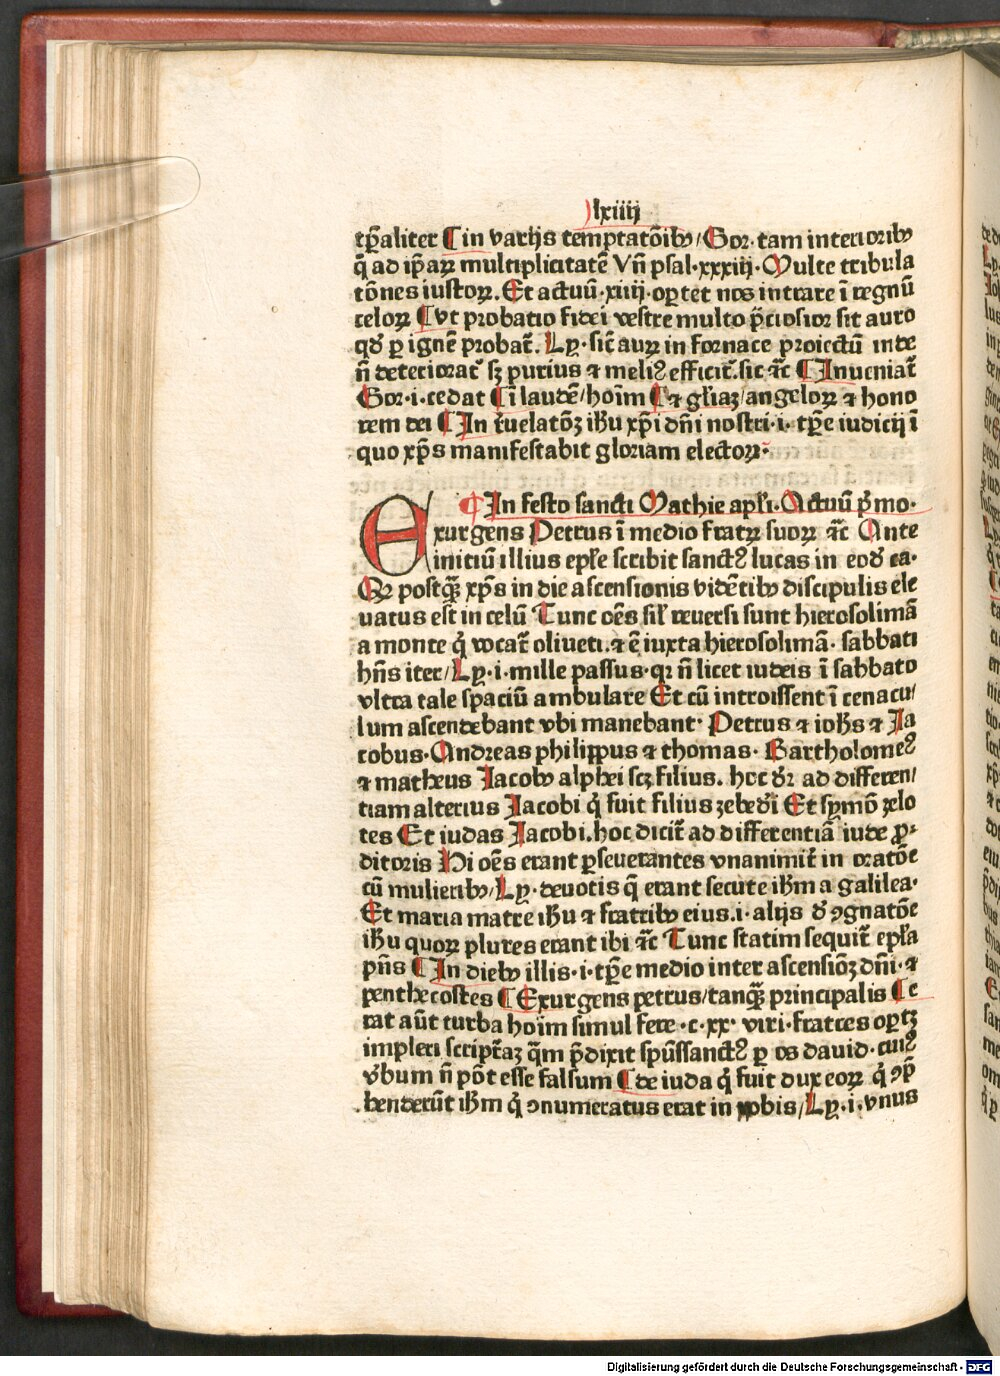 lxiiij
tp̄aliter ¶ in varijs temptatōibꝰ/ Gor· tam interioribꝰ
q̄ ad ip̄aꝝ multiplicitatē Vn̄ psal·xxxiij· Multe tribula
tōnes iustoꝝ. Et actuū·xiiij· oportet nos intrare ī regnū
celoꝝ ¶ Vt probatio fidei vestre multo p̄ciosior sit auro
qd̛ ꝑ ignē probat̄. Ly· sic̄ auꝝ in fornace proiectū inde
n̄ deteriorat̄ sꝫ purius ⁊ meliꝰ efficit̄. sic ⁊c ¶ Inueniat̄
Gor·i·cedat ¶ ī laudē/ hoīm ¶ ⁊ gl̄iaꝫ/ angeloꝝ ⁊ hono
rem dei ¶ In r̄uelatōꝫ ih̄u xp̄i dn̄i nostri·i· tp̄e iudicij ī
quo xp̄s manifestabit gloriam electoꝝ·
¶ In festo sancti Mathie apl̄i· Actuū p̄mo·
Exurgens Petrus ī medio fratꝝ suoꝝ ⁊c Ante
initiū illius epl̄e scribit sanctꝰ lucas in eod̄ ca·
Qꝛ postqꝫ̄ xp̄s in die ascensionis vidētibꝰ discipulis ele
uatus est in celū Tunc oēs sil̄ reuersi sunt hierosolimā
a monte q̄ vocat̄ oliueti. ⁊ ē iuxta hierosolimā· sabbati
hn̄s iter/ Ly·i·mille passus·qꝛ n̄ licet iudeis ī sabbato
vltra tale spaciū ambulare Et cū introissent ī cenacu/
lum ascendebant vbi manebant· Petrus ⁊ ioh̄s ⁊ Ja
cobus· Andreas philippus ⁊ thomas· Bartholomeꝰ
⁊ matheus Jacobꝰ alphei scꝫ filius. hoc d̄r ad differen/
tiam alterius Jacobi q̄ fuit filius zebed̄i Et symō zelo
tes Et iudas Jacobi. hoc dicit̄ ad differentiā iude ꝓ
ditoris Hi oēs erant ꝑseuerantes vnanimit̄ in oratōe
cū mulieribꝰ/ Ly· deuotis q̄ erant secute ih̄m a galilea·
Et maria matre ih̄u ⁊ fratribꝰ eius·i·alijs d̄ ꝯgnatōe
ih̄u quoꝝ plures erant ibi ⁊c Tunc statim sequit̄ epl̄a
pn̄s ¶ In diebꝰ illis·i·tp̄e medio inter ascensiōꝫ dn̄i·⁊
penthecostes ¶ Exurgens petrus/ tanqꝫ̄ principalis ¶ E
rat aūt turba hoīm simul fere ·c·xx· viri·fratres oportꝫ
impleri script̄aꝫ q̄m p̄dixit spūssanctꝰ ꝑ os dauid· cuiꝰ
v̄bum n̄ pōt esse falsum ¶ de iuda q̄ fuit dux eoꝝ q̄ ꝯp̄
henderūt ih̄m q̄ ꝯnumeratus erat in nobis/ Ly·i·vnus
Digitalisierung gefördert durch die Deutsche Forschungsgemeinschaft - DFG